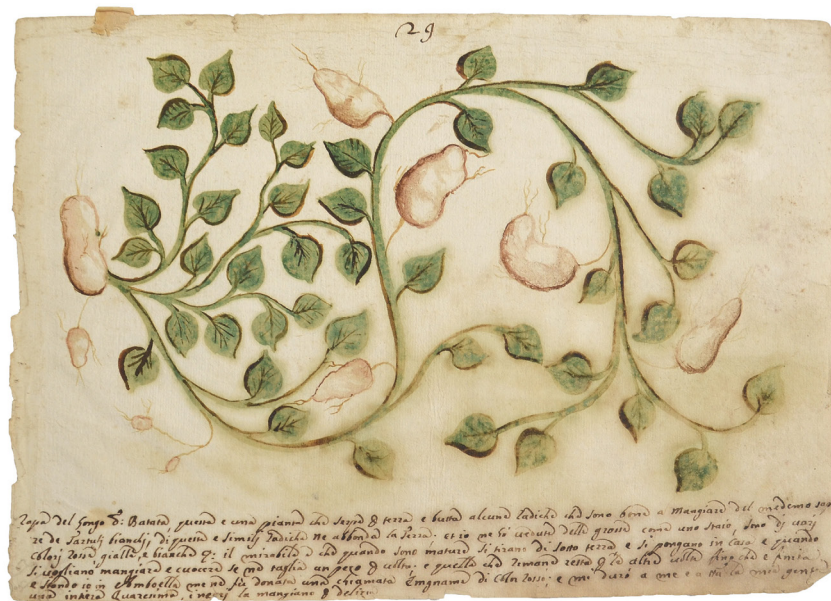 29
del Congo D: Batata, questa e una pianta che serpe P terra e butta alcune radiche che sono bone a Mangiare del medemo sapo
re de Tartufi bianchi, di queste e simili radiche ne abonda la terra. et io ne ho vedute delle grosse come uno staro, sono di varij
Colori rossi, gialli, e bianchi il mirabile è che quando sono mature si tirano di sotto terra e si pongano in casa e quando
si vogliano mangiare e cuocere se ne taglia un pezo P volta, e quella che rimane resta P le altre volte fino che è finita
e stando io in me ne fu donata una chiamata di Color rossi, e mi durò a me e a tutta la mia gente
una intiera Quaresima, i neri la mangiano P